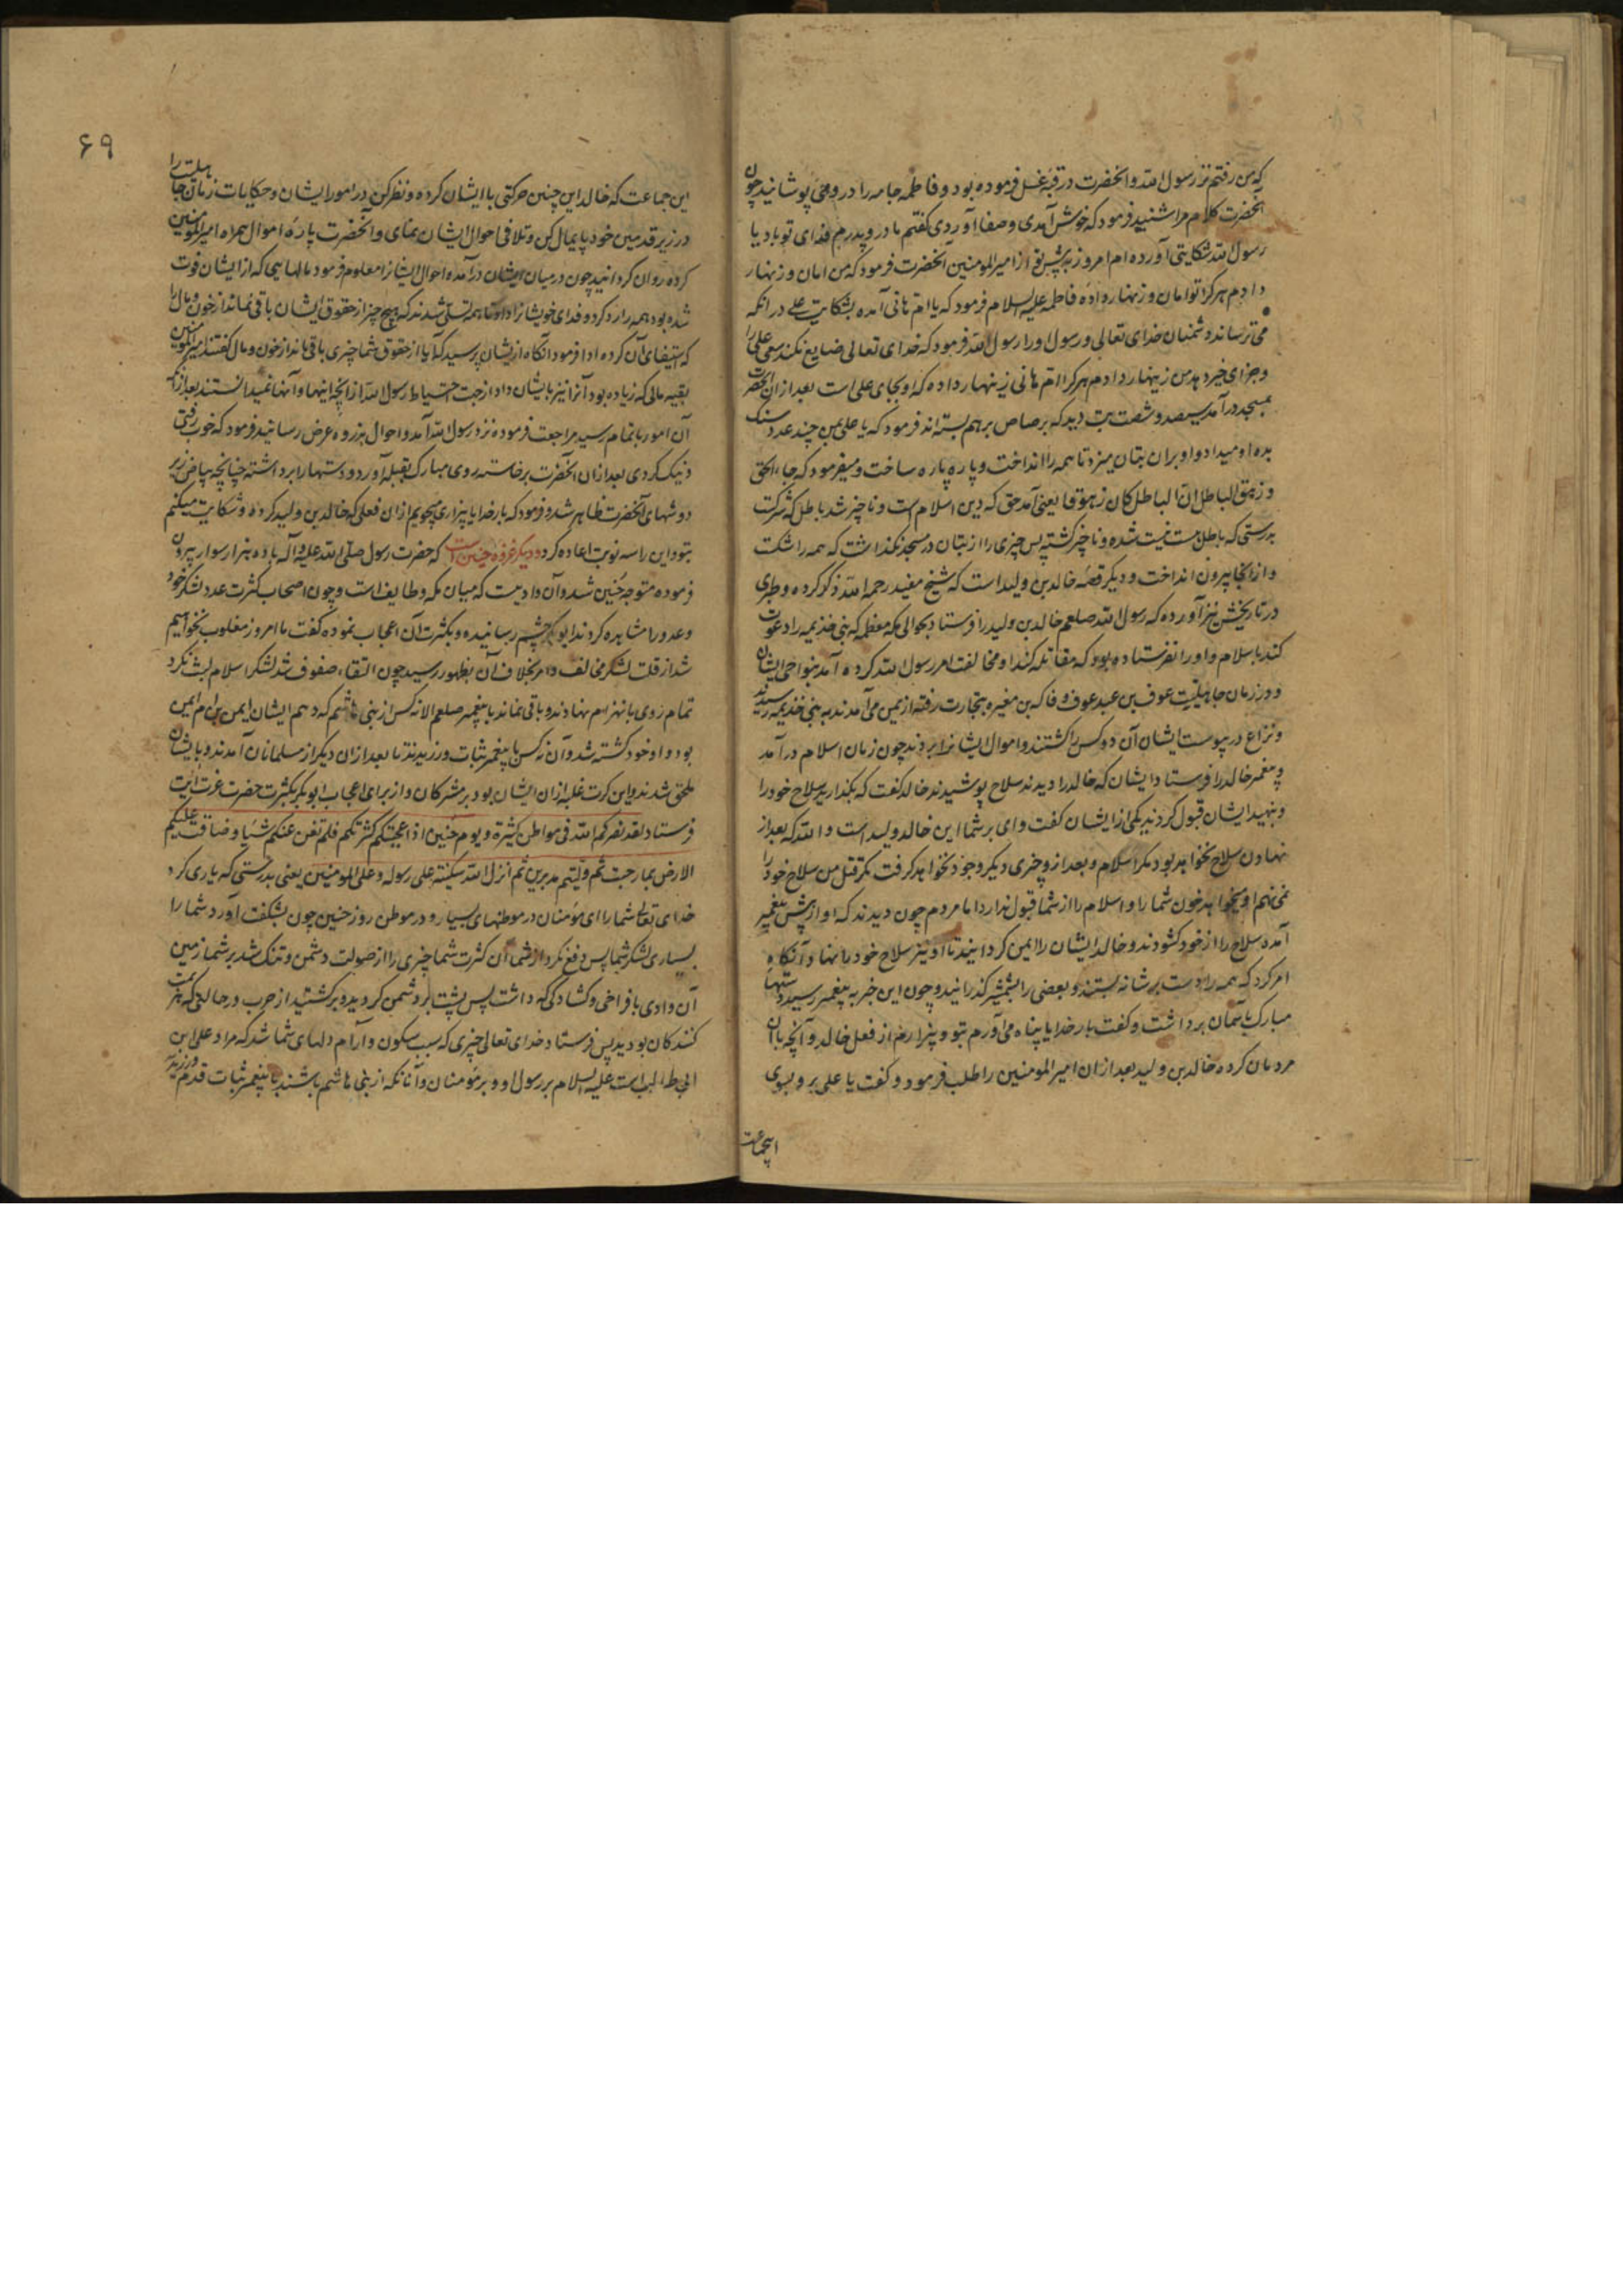 که من رفتم نزد رسول الله و آنحضرت در قبه غسل فرموده بود و فاطمه جامه را در وی می پوشانید چون
آنحضرت کلام مرا شنید فرمود که خوش آمدی و صفا آوردی گفتم مادر و پدرم فدای تو باد یا
رسول الله شکایتی آورده ام امروز پیش تو از امیرالمومنین آنحضرت فرمود که من امان و زنهار
دادم هر کرا تو امان و زنهار داده فاطمه علیه السلام فرمود که یا ام هانی آمده بشکایت علی در آنکه
می ترساند دشمنان خدای تعالی و رسول او را رسول الله فرمود که خدای تعالی ضایع نکند سعی علی را
و جزای خیر دهد من زینهار دادم هر کرا ام هانی زینهار داده که او بجای علی است بعد از ان آنحضرت
بمسجد درآمد سیصد و شصت بت دید که برصاص بر هم بسته اند فرمود که یا علی بمن چند عدد سنک
بده او میداد و او بران بتان میزد تا همه را انداخت و پاره پاره ساخت و میفرمود که جاء الحق
و زهق الباطل ان الباطل کان زهوقا یعنی آمد حق که دین اسلام است و ناچیز شد باطل که شرکت
بدرستی که باطل هست نیست شده و ناچیز گشته پس چیزی را از بتان در مسجد نگذاشت که همه را شکت
و از آنجا بیرون انداخت و دیگر قصه خالد بن ولید است که شیخ مفید رحمه الله ذکر کرده و طبری
در تاریخش نیز آورده که رسول الله صلعم خالد بن ولید را فرستاد بحوالی مکه معظمه که بنی خذیمه را دعوت
کند باسلام و او را نفرستاده بود که مقاتله کند او مخالفت امر رسول الله کرده آمد بنواحی ایشان
و در زمان جاهلیت عوف بن عبد عوف و فاکه بن مغیره بتجارت رفته از یمن می آمدند به بنی خذیمه رسیدند
و نزاع در پیوست ایشان آن دو کس را کشتند و اموال ایشانرا بردند چون زمان اسلام درآمد
و پیغمبر خالد را فرستاد ایشان که خالد را دیدند سلاح پوشیدند خالد گفت که بگذارید سلاح خود را
و بنهید ایشان قبول کردند یکی از ایشان گفت وای بر شما این خالد ولید است و الله که بعد از
نهادن سلاح نخواهد بود مگر اسلام و بعد از و چیزی دیگر وجود نخواهد گرفت مگر قتل من سلاح خود را
نمی نهم او میخواهد خون شما را و اسلام را از شما قبول ندارد اما مردم چون دیدند که او از پیش پیغمبر
آمده سلاح را از خود کشودند و خالد ایشان را ایمن گردانید تا او نیز سلاح خود را نهاد آنگاه
امر کرد که همه را دست بر شانه بستند و بعضی را بشمشیر گذرانید و چون این خبر به پیغمبر رسید دستهاء
مبارک بآسمان برداشت و گفت بار خدایا پناه می آورم بتو و بیزارم از فعل خالد و آنچه با آن
مردمان کرده خالد بن ولید بعد از ان امیرالمومنین را طلب فرمود و گفت یا علی برو بسوی
اینجماعت
۶۹
این جماعت که خالد این چنین حرکتی با ایشان کرده و نظر کن در امور ایشان و حکایات زمان جاهلیت را
در زیر قدمین خود پایمال کن و تلافی احوال ایشان بنمای و آنحضرت پاره اموال همراه امیرالمومنین
کرده روان گردانید چون در میان ایشان درآمده احوال ایشانرا معلوم فرمود مالهایی که از ایشان فوت
شده بود همه را رد کرد و فدای خویشانرا داد تا همه تسلی شدند که هیچ چیز از حقوق ایشان باقی نماند از خون و مال را
که استیفای آن کرده ادا فرمود آنگاه از یشان پرسید که آیا از حقوق شما چیزی باقی ماند از خون و مال گفتند امیرالمومنین
بقیه مالی که زیاده بود آنرا نیز بایشان داد از جهت احتیاط رسول الله از آنچه اینها و آنها نمیدانستند بعد از آنکه
آن امور باتمام رسید مراجعت فرموده نزد رسول الله آمد و احوال بذروه عرض رسانید فرمود که خوب رفتی
و نیک کردی بعد از ان آنحضرت برخاسته روی مبارک بقبله آورد و دستها را برداشته چنانچه بیاض زیر
دوشهای آنحضرت ظاهر شد و فرمود که بار خدایا بیزاری میجویم از ان فعلی که خالد بن ولید کرده و شکایت میکنم
بتو و این را سه نوبت اعاده کرد و دیگر غزوه حنین است که حضرت رسول صلی الله علیه و آله با ده هزار سوار بیرون
فرموده متوجه حنین شد و آن وادیست که میان مکه و طایف است و چون اصحاب کثرت عدد لشکر خود
و عدو را مشاهده کردند ابوبکر چشم رسانیده و بکثرت آن اعجاب نموده گفت ما امروز مغلوب نخواهیم
شد از قلت لشکر مخالف و امر بخلاف آن بظهور رسید چون التقاء صفوف شد لشکر اسلام لبث نکرد
تمام روی بانهزام نهادند و باقی نماند با پیغمبر صلعم الا نه کس از بنی هاشم که دهم ایشان ایمن بن ام ایمن
بود و او خود کشته شد و آن نه کس با پیغمبر ثبات ورزیدند تا بعد از ان دیگر از مسلمانان آمدند و بایشان
ملحق شدند و این کرت غلبه از ان ایشان بود بر مشرکان و از برای اعجاب ابوبکر بکثرت حضرت عزت آیت
فرستاد لقد نصرکم الله فی مواطن کثیرة و یوم حنین اذ اعجبتکم کثرتکم فلم تغن عنکم شیئا و ضاقت علیکم
الارض بما رحبت ثم ولیتم مدبرین ثم انزل الله سکینته علی رسوله و علی المومنین یعنی بدرستی که یاری کرد
خدای تعالی شما را ای مؤمنان در موطنهای بسیار و در موطن روز حنین چون بشگفت آورد شما را
بسیاری لشکر شما پس دفع نکرد از شما آن کثرت شما چیزی را از صولت دشمن و تنک شد بر شما زمین
آن وادی با فراخی و کشادگی که داشت پس پشت بر دشمن کردید و برگشتید از حرب در حالتی که هزیمت
کنندگان بودید پس فرستاد خدای تعالی چیزی که سبب سکون و آرام دلهای شما شد که مراد علی ابن
ابی طالب است علیه السلام بر رسول او و بر مؤمنان و آنانکه از بنی هاشم باشند با پیغمبر ثبات قدم ورزیدند